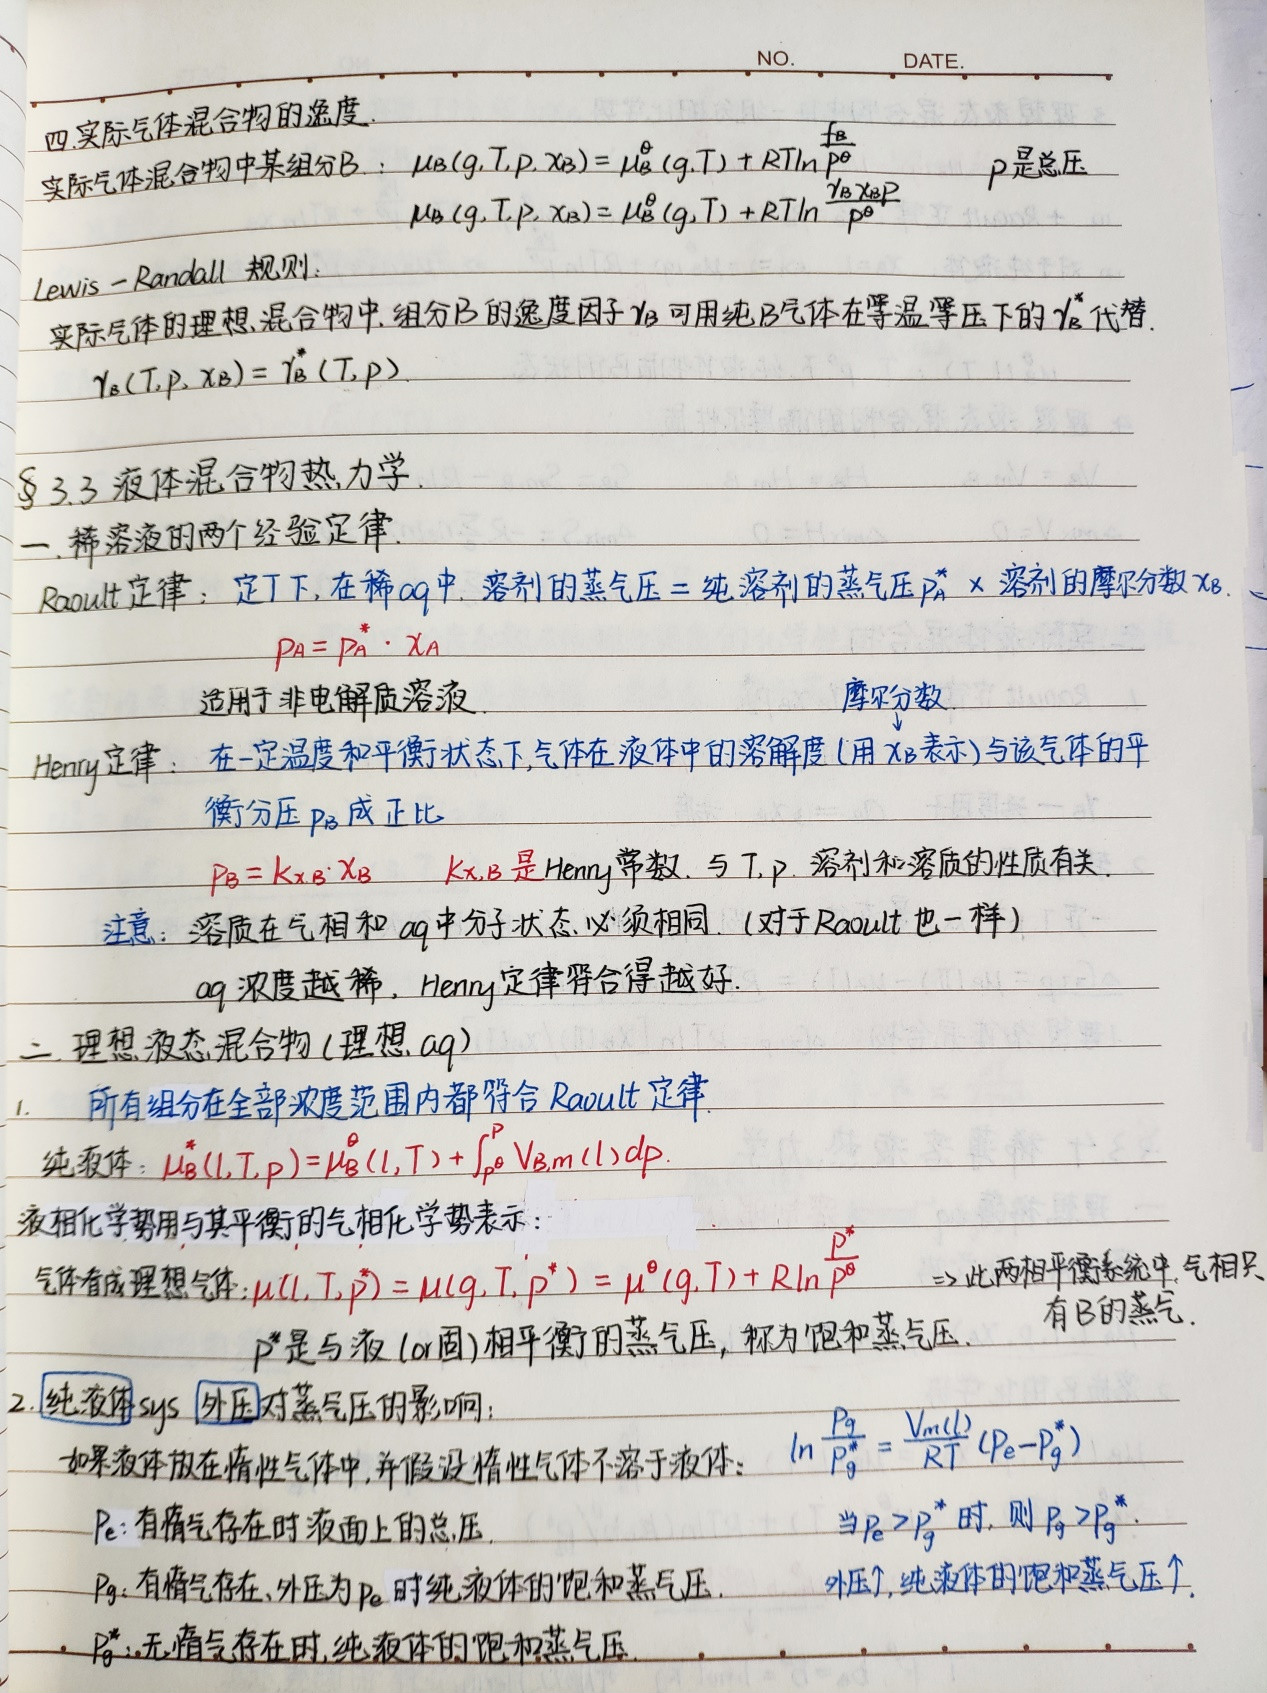 NO. DATE.
四.实际气体混合物的逸度.
实际气体混合物中某组分B: μB(g,T,p,xB)=μB^θ(g,T)+RTln fB/p^θ p是总压
μB(g,T,p,xB)=μB^θ(g,T)+RTln γB xB p/p^θ
Lewis-Randall 规则:
实际气体的理想混合物中,组分B的逸度因子γB可用纯B气体在等温等压下的γB*代替.
γB(T,p,xB)=γB*(T,p).
§3.3 液体混合物热力学.
一.稀溶液的两个经验定律.
Raoult定律: 定T下,在稀aq中.溶剂的蒸气压=纯溶剂的蒸气压pA*×溶剂的摩尔分数xB.
pA=pA*·xA
适用于非电解质溶液. 摩尔分数.
↓
Henry定律: 在一定温度和平衡状态下,气体在液体中的溶解度(用xB表示)与该气体的平
衡分压pB成正比
pB=kx,B·xB kx,B是Henry常数.与T,p.溶剂和溶质的性质有关.
注意: 溶质在气相和aq中分子状态必须相同.(对于Raoult也一样)
aq浓度越稀,Henry定律符合得越好.
二.理想液态混合物(理想aq)
1. 所有组分在全部浓度范围内都符合Raoult定律.
纯液体: μB*(l,T,p)=μB^θ(l,T)+∫_{p^θ}^{p} VB,m(l)dp.
液相化学势用与其平衡的气相化学势表示:
气体看成理想气体: μ(l,T,p*)=μ(g,T,p*)=μ^θ(g,T)+Rln p*/p^θ ⇒此两相平衡系统中,气相只
有B的蒸气.
p*是与液(or固)相平衡的蒸气压,称为饱和蒸气压.
2.纯液体sys 外压对蒸气压的影响:
如果液体放在惰性气体中,并假设惰性气体不溶于液体: ln Pg/Pg* = Vm(l)/RT (Pe-Pg*)
Pe:有惰气存在时液面上的总压. 当Pe>Pg*时,则Pg>Pg*.
Pg:有惰气存在、外压为Pe时纯液体的饱和蒸气压. 外压↑,纯液体的饱和蒸气压↑.
Pg*:无惰气存在时,纯液体的饱和蒸气压.